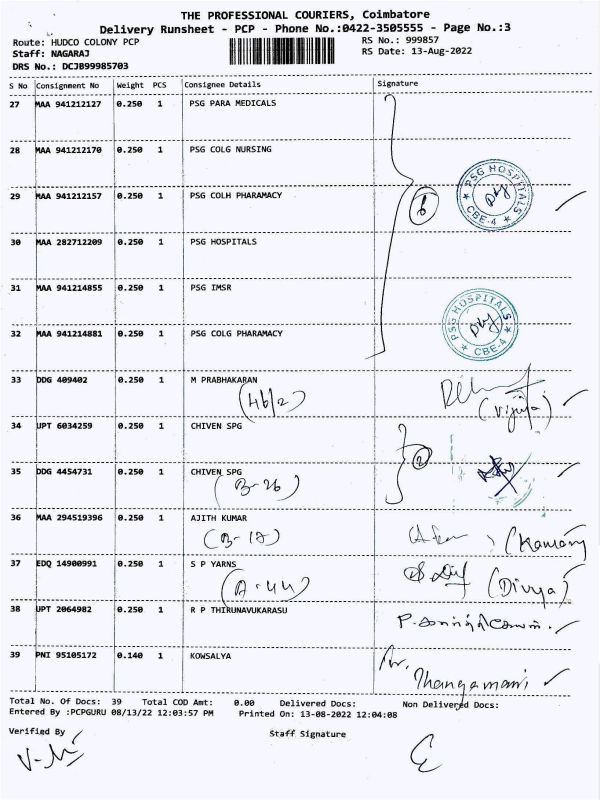 THE PROFESSIONAL COURIERS, Coimbatore
Delivery Runsheet - PCP - Phone No.:0422-3505555 - Page No.:3
Route: HUDCO COLONY PCP RS No.: 999857
Staff: NAGARAJ RS Date: 13-Aug-2022
DRS No.: DCJB99985703
S No Consignment No Weight PCS Consignee Details Signature
27 MAA 941212127 0.250 1 PSG PARA MEDICALS
28 MAA 941212170 0.250 1 PSG COLG NURSING
PSG HOSPITALS
29 MAA 941212157 0.250 1 PSG COLH PHARAMACY 6
CBE-4
30 MAA 282712209 0.250 1 PSG HOSPITALS
31 MAA 941214855 0.250 1 PSG IMSR
PSG HOSPITALS
32 MAA 941214881 0.250 1 PSG COLG PHARAMACY
CBE-4
33 DDG 409402 0.250 1 M PRABHAKARAN
(46/2)
34 UPT 6034259 0.250 1 CHIVEN SPG
2
35 DDG 4454731 0.250 1 CHIVEN SPG
(B-26)
36 MAA 294519396 0.250 1 AJITH KUMAR
(B-17)
37 EDQ 14900991 0.250 1 S P YARNS
(A-44) (Divya)
38 UPT 2064982 0.250 1 R P THIRUNAVUKARASU
39 PNI 95105172 0.140 1 KOWSALYA
Thangamani
Total No. Of Docs: 39 Total COD Amt: 0.00 Delivered Docs: Non Delivered Docs:
Entered By :PCPGURU 08/13/22 12:03:57 PM Printed On: 13-08-2022 12:04:08
Verified By Staff Signature